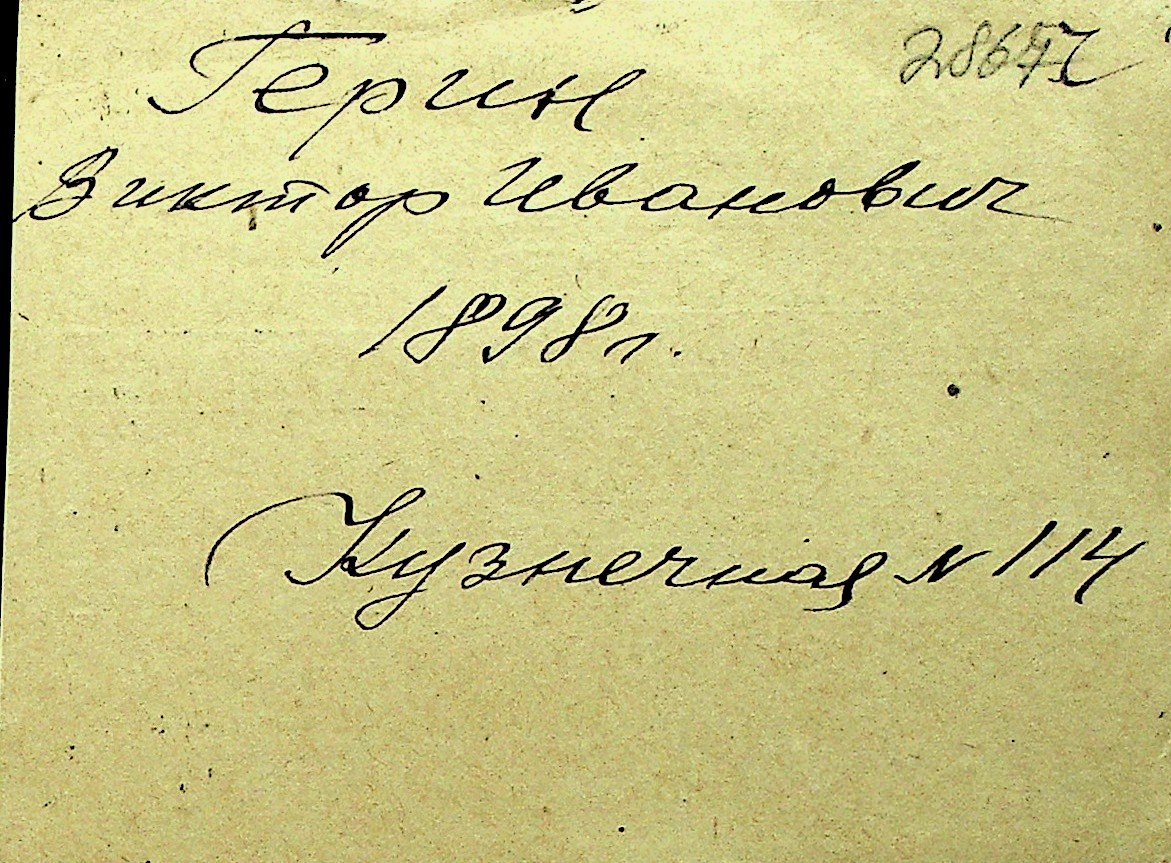 Герин
Виктор Иванович
1898 г.
Кузнечная N 114